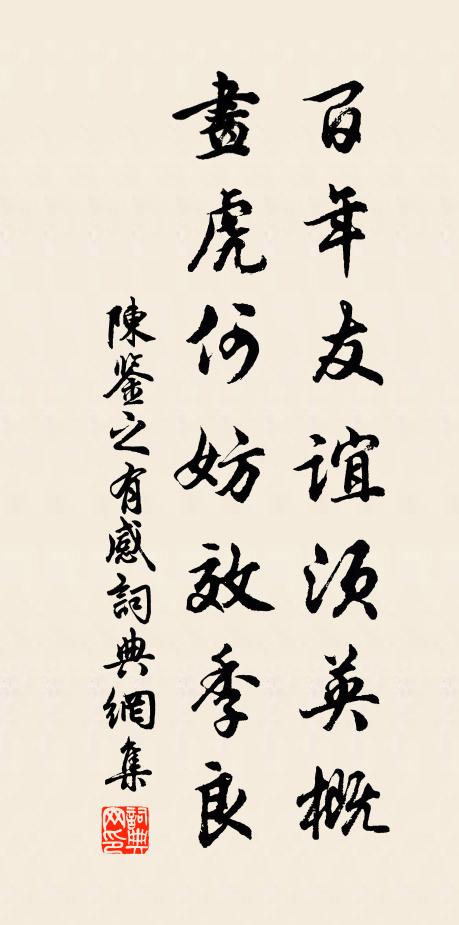 百年友誼須英概
畫虎何妨效季良
陳鉴之有感詞典網集
詞典
网印